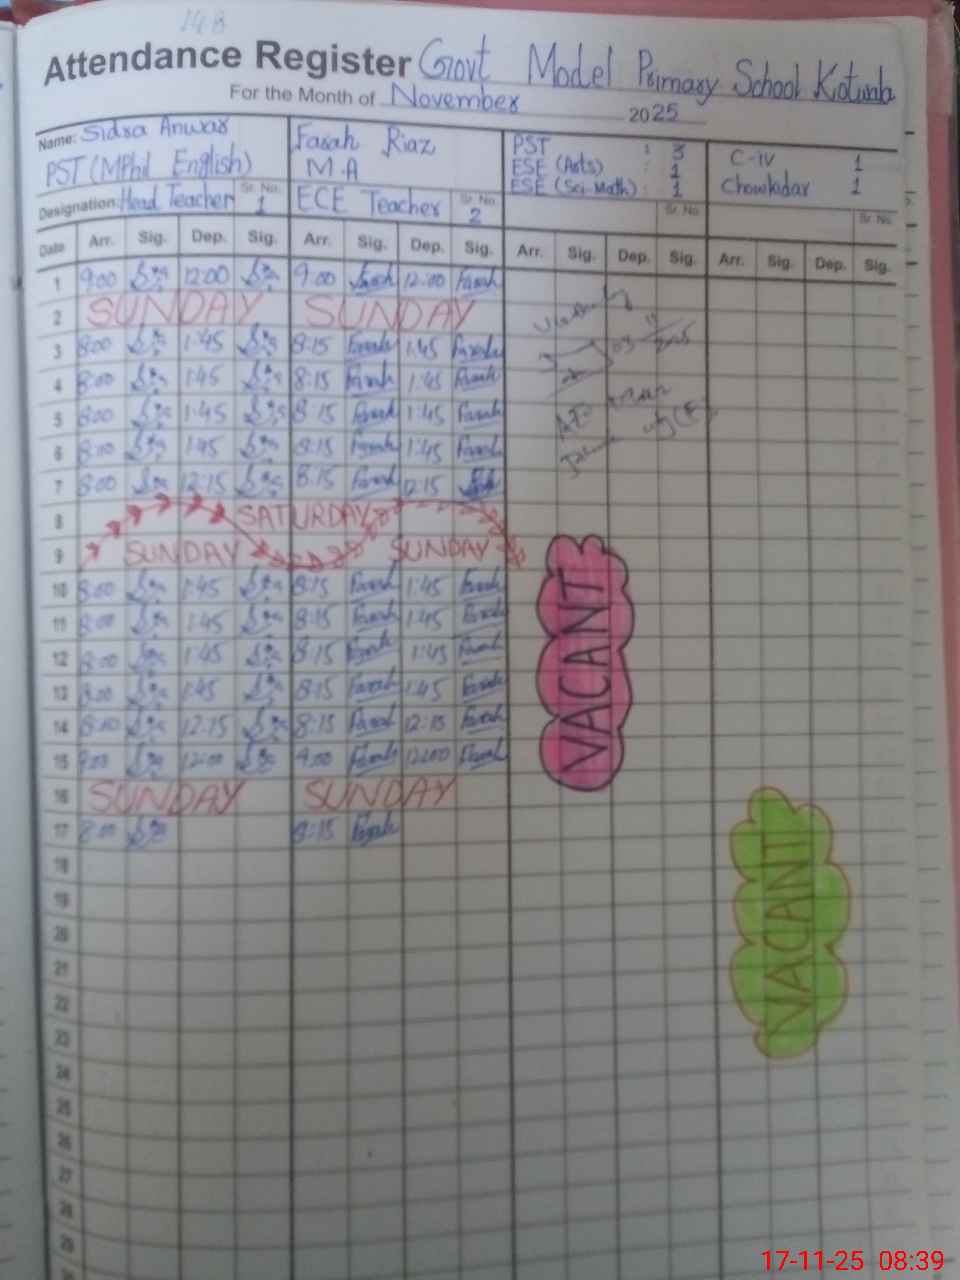 148
Attendance Register Govt Model Primary School Kotwala
For the Month of November 2025
Name: Sidra Anwar Farah Riaz PST : 3 C-IV 1
PST (MPhil English) M.A ESE (Arts) : 1 Chowkidar 1
ESE (Sci-Math) : 1
Designation: Head Teacher Sr. No. 1 ECE Teacher Sr. No. 2 Sr. No. Sr. No.
Date Arr. Sig. Dep. Sig. Arr. Sig. Dep. Sig. Arr. Sig. Dep. Sig. Arr. Sig. Dep. Sig.
1 9:00 12:00 9:00 Farah 12:00 Farah
2 SUNDAY SUNDAY
3 8:00 1:45 8:15 Farah 1:45 Farah
4 8:00 1:45 8:15 Farah 1:45 Farah
5 8:00 1:45 8:15 Farah 1:45 Farah
6 8:00 1:45 8:15 Farah 1:45 Farah
7 8:00 12:15 8:15 Farah 12:15
8 SATURDAY
9 SUNDAY SUNDAY
10 8:00 1:45 8:15 Farah 1:45 Farah
11 8:00 1:45 8:15 Farah 1:45 Farah
12 8:00 1:45 8:15 Farah 1:45 Farah
13 8:00 1:45 8:15 Farah 1:45 Farah
14 8:00 12:15 8:15 Farah 12:15 Farah
15 9:00 12:00 9:00 Farah 12:00 Farah
16 SUNDAY SUNDAY
17 8:00 8:15 Farah
VACANT
18
19
20
21
22
23
VACANT
24
25
26
27
28
29
17-11-25 08:39